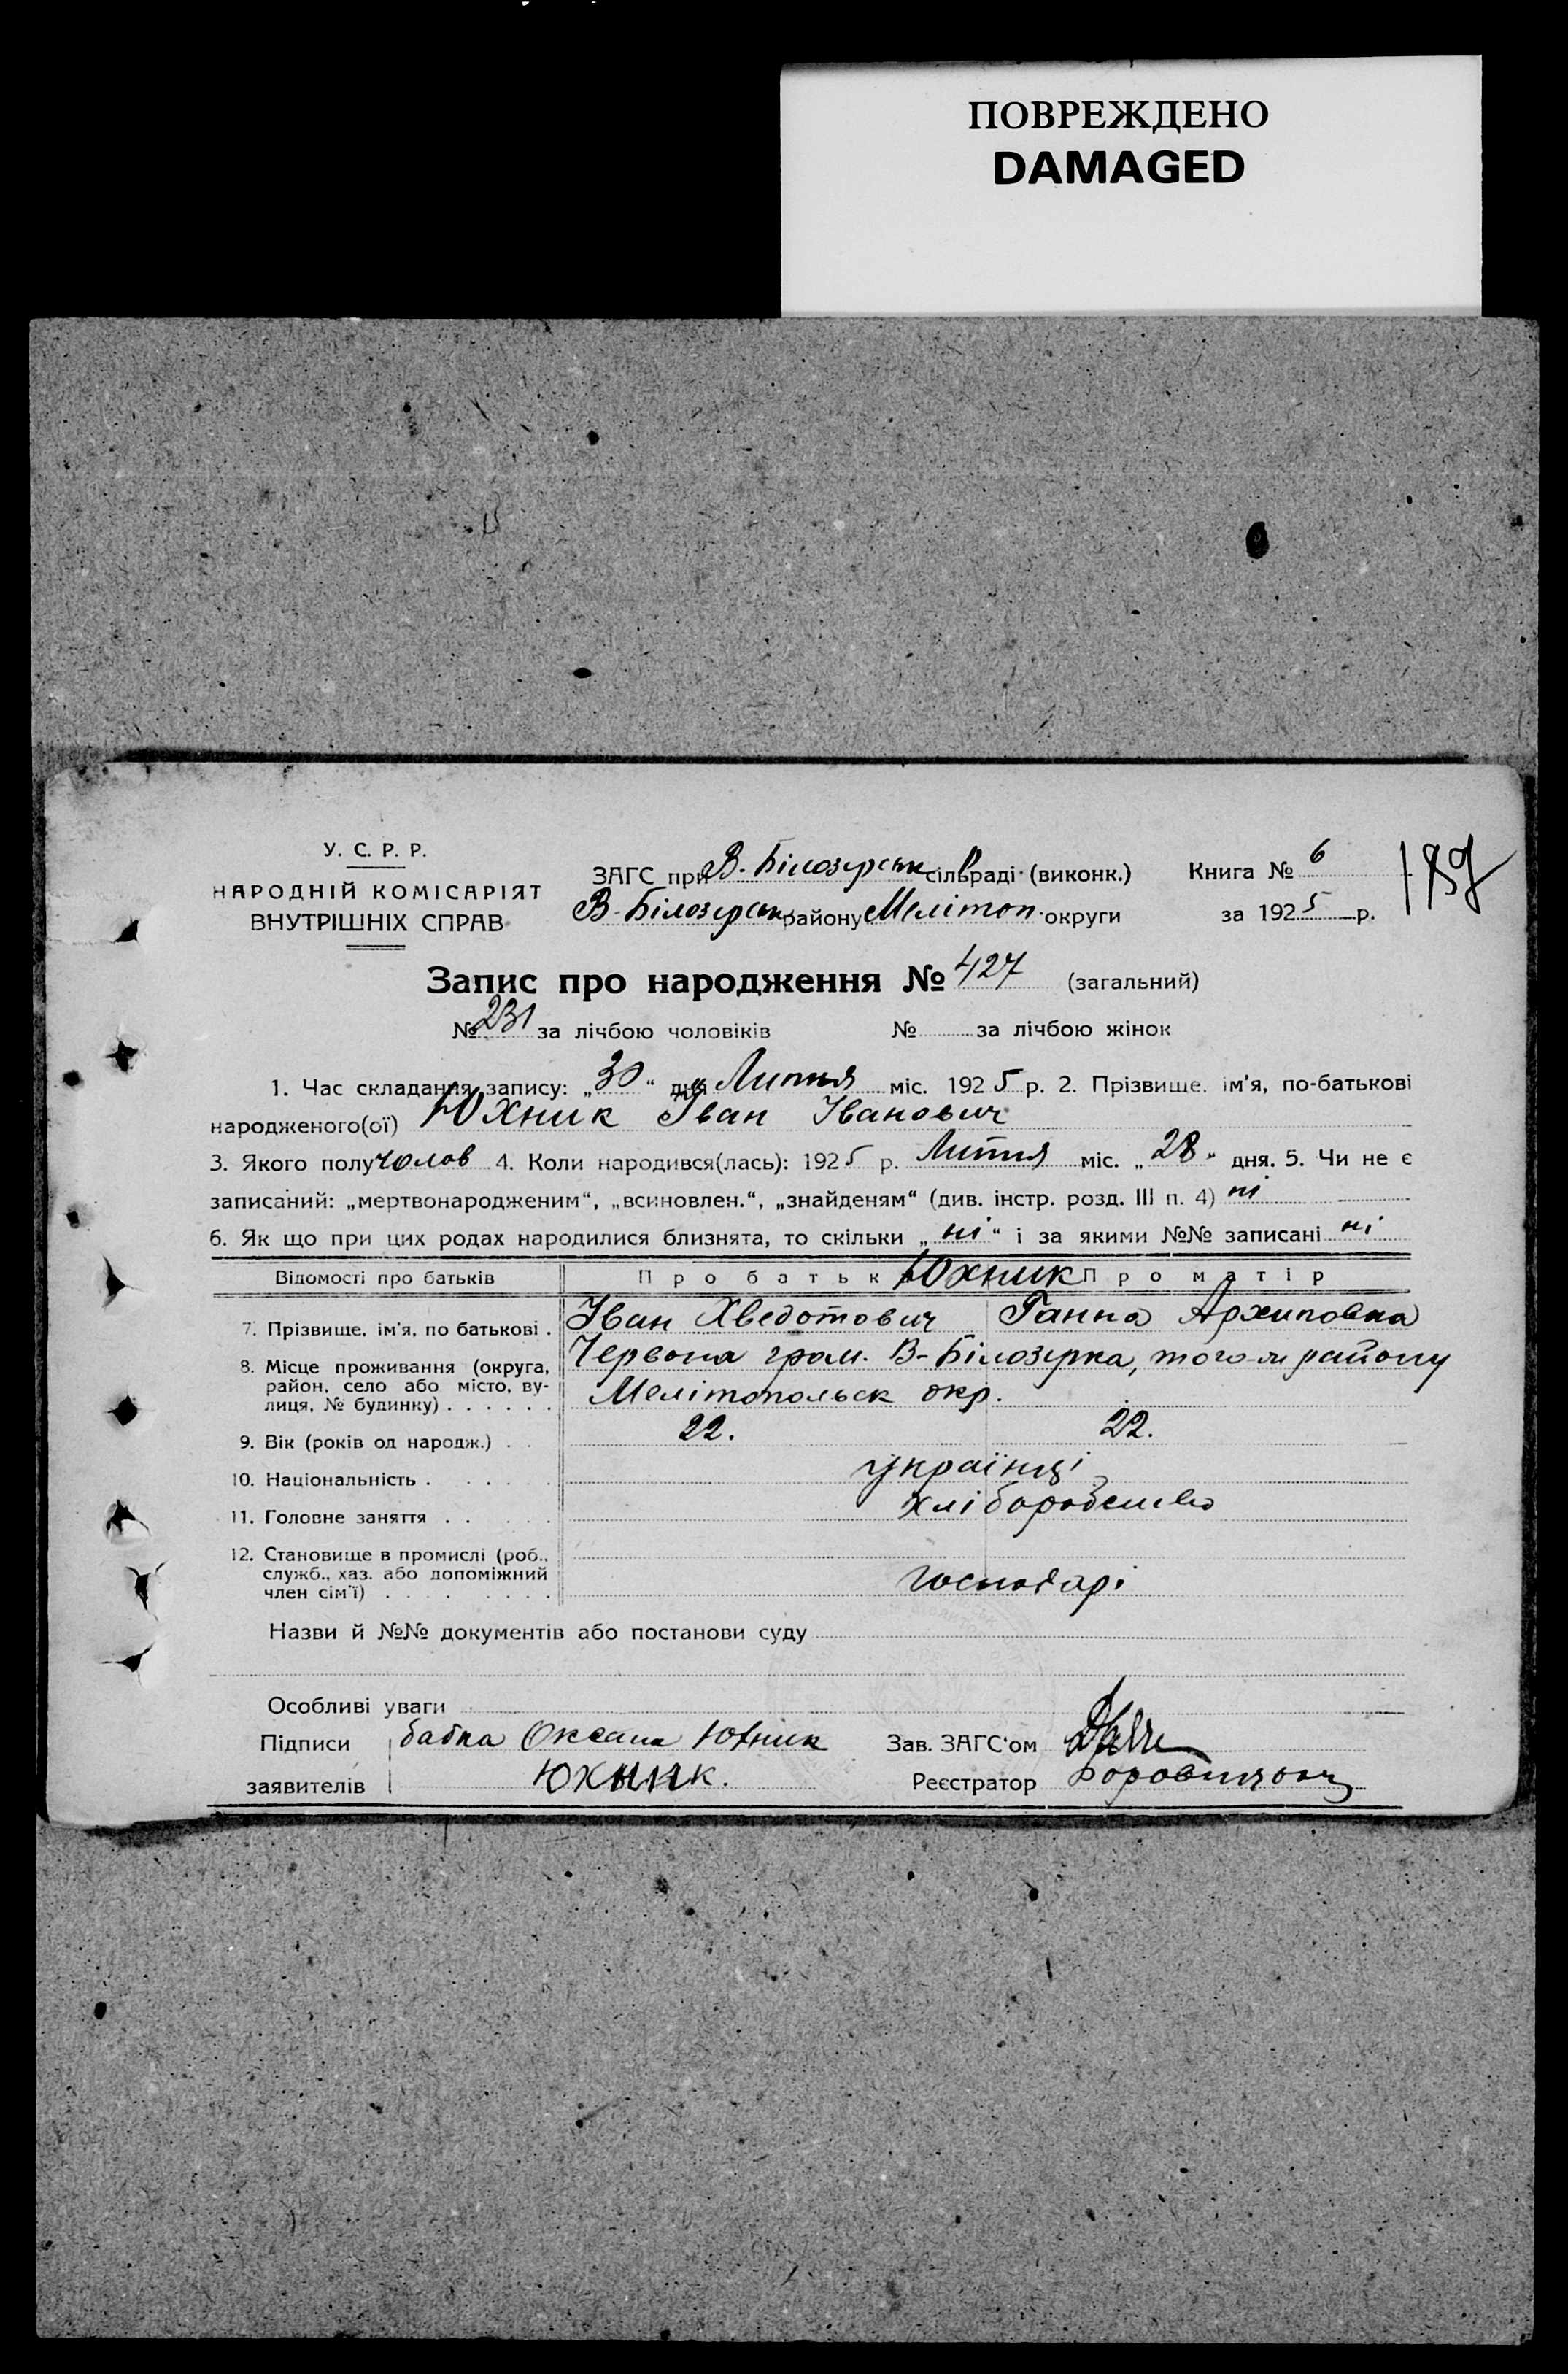 ПОВРЕЖДЕНО
DAMAGED
У. С. Р. Р.
НАРОДНІЙ КОМІСАРІЯТ
ВНУТРІШНІХ СПРАВ
ЗАГС при В. Білозерськ сільраді (виконк.)
В-Білозерськ району Мелітоп. округи
Книга № 6
за 1925 р.
Запис про народження № 427 (загальний)
№ 231 за лічбою чоловіків № за лічбою жінок
1. Час складання запису: „30“ дня Липня міс. 1925 р. 2. Прізвище, ім'я, по-батькові
народженого(ої) Юхник Іван Іванович
3. Якого полу чолов 4. Коли народився(лась): 1925 р. Липня міс. „28“ дня. 5. Чи не є
записаний: „мертвонародженим“, „всиновлен.“, „знайденям“ (див. інстр. розд. III п. 4) ні
6. Як що при цих родах народилися близнята, то скільки „ні“ і за якими №№ записані ні
Відомості про батьків Про батька Юхник Про матір
7. Прізвище, ім'я, по батькові . Іван Хведотович Ганна Архиповна
8. Місце проживання (округа, Червона гром. В-Білозерка, того-ж району
район, село або місто, ву-
лиця, № будинку) . . . . . . Мелітопольськ окр.
9. Вік (років од народж.) . . 22. 22.
10. Національність . . . . . українці
11. Головне заняття . . . . . хліборобство
12. Становище в промислі (роб.,
служб., хаз. або допоміжний
член сім'ї) . . . . . . . . господарі
Назви й №№ документів або постанови суду
Особливі уваги
Підписи бабка Оксана Юхник Зав. ЗАГС'ом
заявителів Юхник. Реєстратор